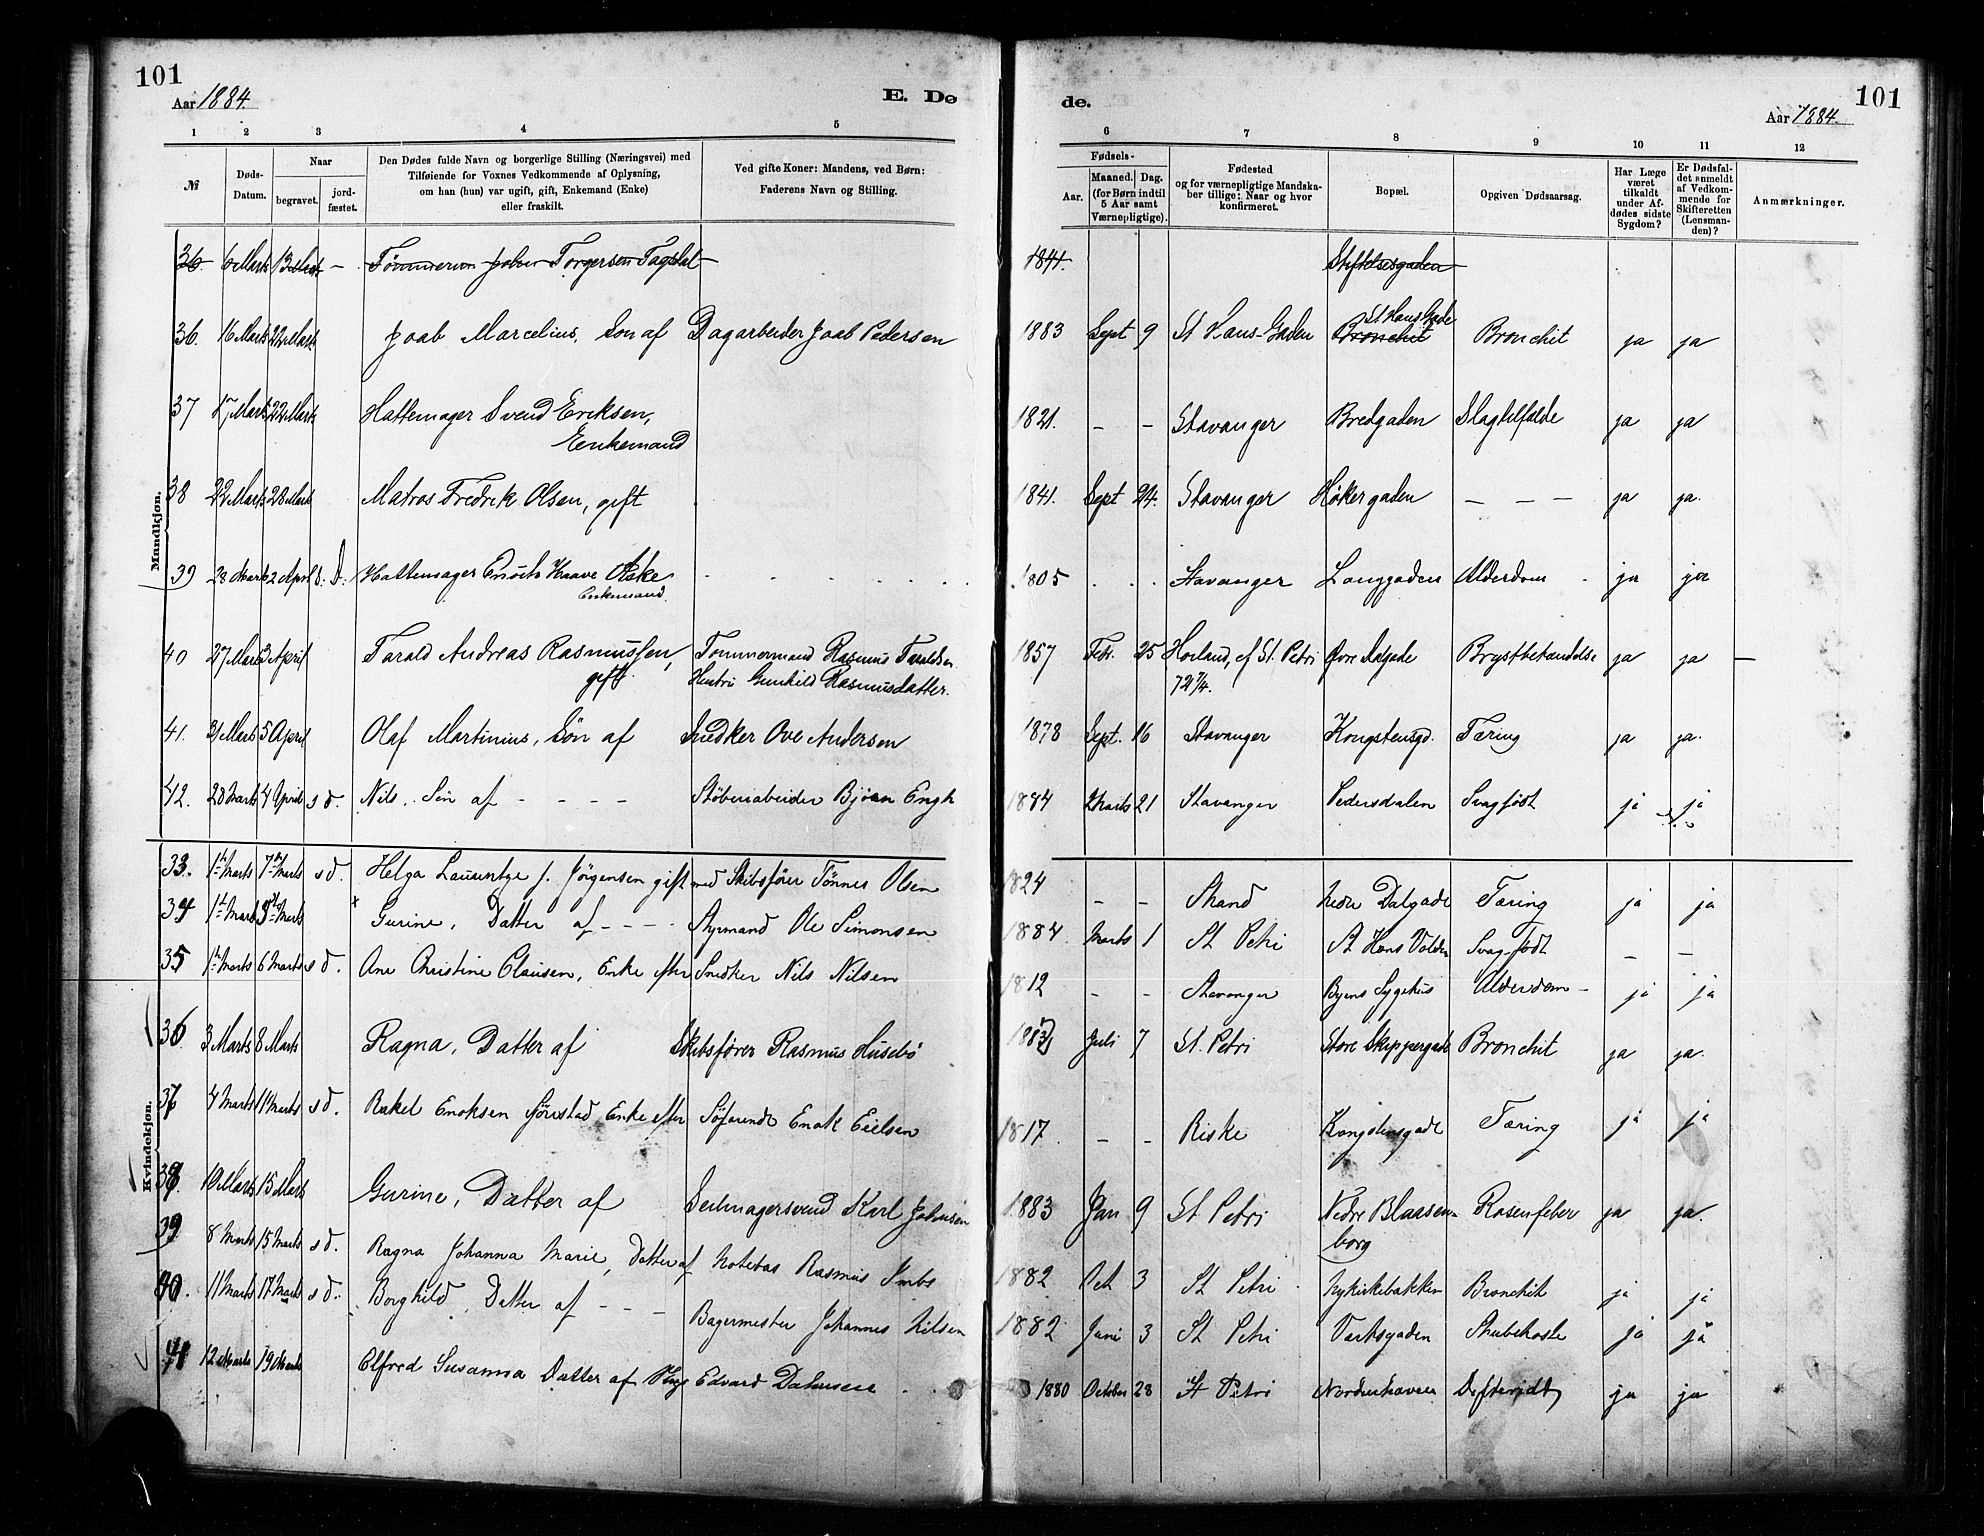 101
Aar 1884.
E. Dø
de.
Aar 1884.
101
1 2 3 4 5 6 7 8 9 10 11 12
№
Døds-Datum.
Naar
begravet.
jord-fæstet.
Den Dødes fulde Navn og borgerlige Stilling (Næringsvei) med
Tilføiende for Voxnes Vedkommende af Oplysning,
om han (hun) var ugift, gift, Enkemand (Enke)
eller fraskilt.
Ved gifte Koner: Mandens, ved Børn:
Faderens Navn og Stilling.
Fødsels-
Aar.
Maaned. Dag.
(for Børn indtil
5 Aar samt
Værnepligtige).
Fødested
og for værnepligtige Mandska-
ber tillige: Naar og hvor
konfirmeret.
Bopæl.
Opgiven Dødsaarsag.
Har Læge
været
tilkaldt
under Af-
dødes sidste
Sygdom?
Er Dødsfal-
det anmeldt
af Vedkom-
mende for
Skifteretten
(Lensman-
den)?
Anmærkninger.
Mandkjøn.
36. 6 Marts 13 Marts – Tømmerm Johan Torgersen Tagdal 1841. Stiftelsesgaden
St Hans Gade
36. 16 Marts 22 Marts Joab Marcelius, Søn af Dagarbeider Joab Pedersen 1883 Sept 9 St Hans-Gaden Bronchit Bronchit ja ja
37 17 Marts 22 Marts Hattemager Svend Eriksen, 1821. – – Stavanger Bredgaden Slagtilfælde ja ja
Enkemand
38 22 Marts 28 Marts Matros Fredrik Olsen, gift 1841. Sept 24. Stavanger Høkergaden – – – ja ja.
39 28 Marts 2 April s. D. Hattemager Enoch Haave Aske 1805 Stavanger Langgaden Alderdom ja ja
Enkemand.
40 27 Marts 3 April Tarald Andreas Rasmussen, Tømmermand Rasmus Taraldsen 1857 Febr. 25 Hoeland, cf St. Petri Øvre Dalgade Brystbetændelse ja ja –
gift. Hustru Gunhild Rasmusdatter. 72 7/4.
41. 31 Marts 5 April Olaf Martinius, Søn af Snedker Ove Andersen 1878 Sept. 16 Stavanger Kongstensgd. Tæring ja ja.
42. 28 Marts 4 April s d. Nils. Søn af – – – – Støberiarbeider Bjørn Engh 1884 Marts 21 Stavanger Pedersdalen Svagfødt ja ja
Kvindekjøn.
33. 1ste Marts 7de Marts s d. Helga Laurentze f. Jörgensen gift med Skibsfører Tönnes Olsen 1824 – – Strand Nedre Dalgade Tæring ja ja
34 1ste Marts Marts Gurine, Datter af – – – – Styrmand Ole Simonsen 1884. Marts 1 St Petri St Hans Volden Svagfødt – –
35 1ste Marts 6 Marts s d. Ane Christine Clausen, Enke efter Snedker Nils Nilsen 1812 – – Stavanger Byens Sygehus Alderdom – ja ja
36 3 Marts 8 Marts Ragna, Datter af Skibsfører Rasmus Husebø Juli 7 St. Petri Store Skippergade Bronchit ja ja.
37 4 Marts 11 Marts s d. Rakel Enoksen Enke efter Söfarende Enok Eielsen 1817 – – Riske Kongstensgade Tæring ja ja
38. 10 Marts 15 Marts Gurine, Datter af Seilmagersvend Karl Johnsen 1883 Jan 9 St Petri Nedre Blaasen- Rosenfeber ja ja.
borg
39 8 Marts 15 Marts s d. Ragna Johanna Marie, Datter af Notebas Rasmus 1882. Oct 3 St Petri Nykirkebakken Bronchit ja ja
40. 11 Marts 17 Marts s d. Borghild, Datter af – – – Bagermester Johannes Nilsen 1882 Juni 3 St Petri Varksgaden Strubehoste ja ja
41 12 Marts 19 Marts Elfred Susanna Datter af Edvard Dahnsen 1880 October 28 St Petri Nordrehavnen Difteridt ja ja